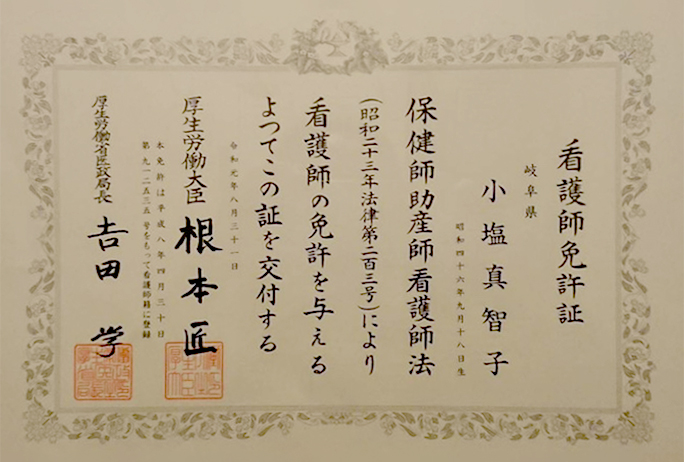 看護師免許証
岐阜県
小塩真智子
昭和四十六年九月十八日生
保健師助産師看護師法
(昭和二十三年法律第二百三号)により
看護師の免許を与える
よつてこの証を交付する
令和元年八月三十一日
厚生労働大臣 根本匠
本免許は平成八年四月三十日
第九一二五三五号をもって看護師籍に登録
厚生労働省医政局長 吉田学